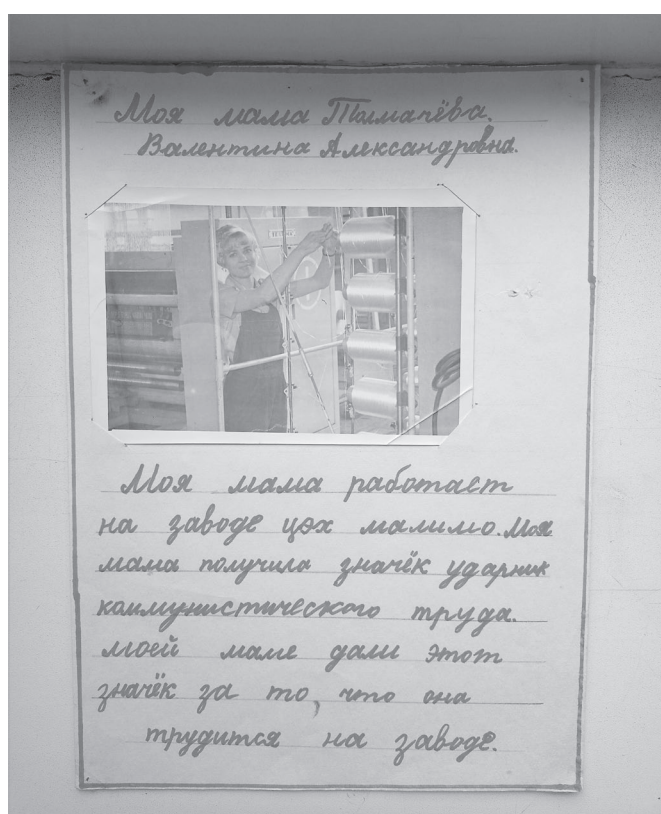 Моя мама Толмачёва.
Валентина Александровна.
Моя мама работает
на заводе цех малимо. Моя
мама получила значёк ударник
коммунистического труда.
моей маме дали этот
значёк за то, что она
трудится на заводе.